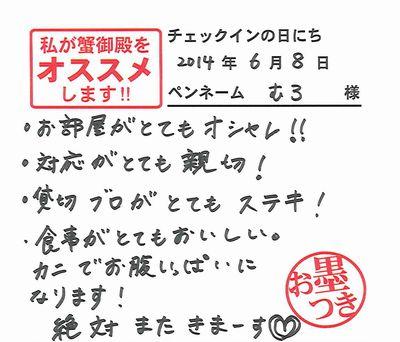 私が蟹御殿を
オススメ
します!!
チェックインの日にち
2014 年 6 月 8 日
ペンネーム むろ 様
・お部屋がとてもオシャレ!!
・対応がとても親切!
・貸切ブロがとてもステキ!
・食事がとてもおいしい。
カニでお腹いっぱいに
なります!
絶対またきまーす♡
お墨つき